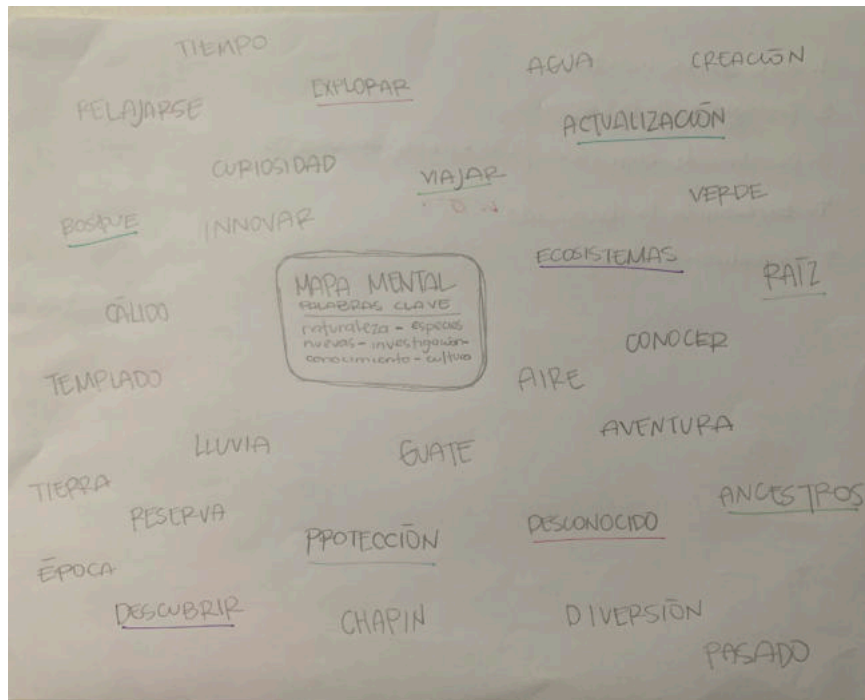 TIEMPO
AGUA
CREACIÓN
RELAJARSE
EXPLORAR
ACTUALIZACIÓN
CURIOSIDAD
VIAJAR
VERDE
BOSQUE
INNOVAR
ECOSISTEMAS
RAÍZ
MAPA MENTAL
PALABRAS CLAVE
naturaleza - especies
nuevas - investigación -
conocimiento - cultura
CÁLIDO
CONOCER
TEMPLADO
AIRE
LLUVIA
GUATE
AVENTURA
TIERRA
RESERVA
PROTECCIÓN
DESCONOCIDO
ANCESTROS
ÉPOCA
DESCUBRIR
CHAPIN
DIVERSIÓN
PASADO